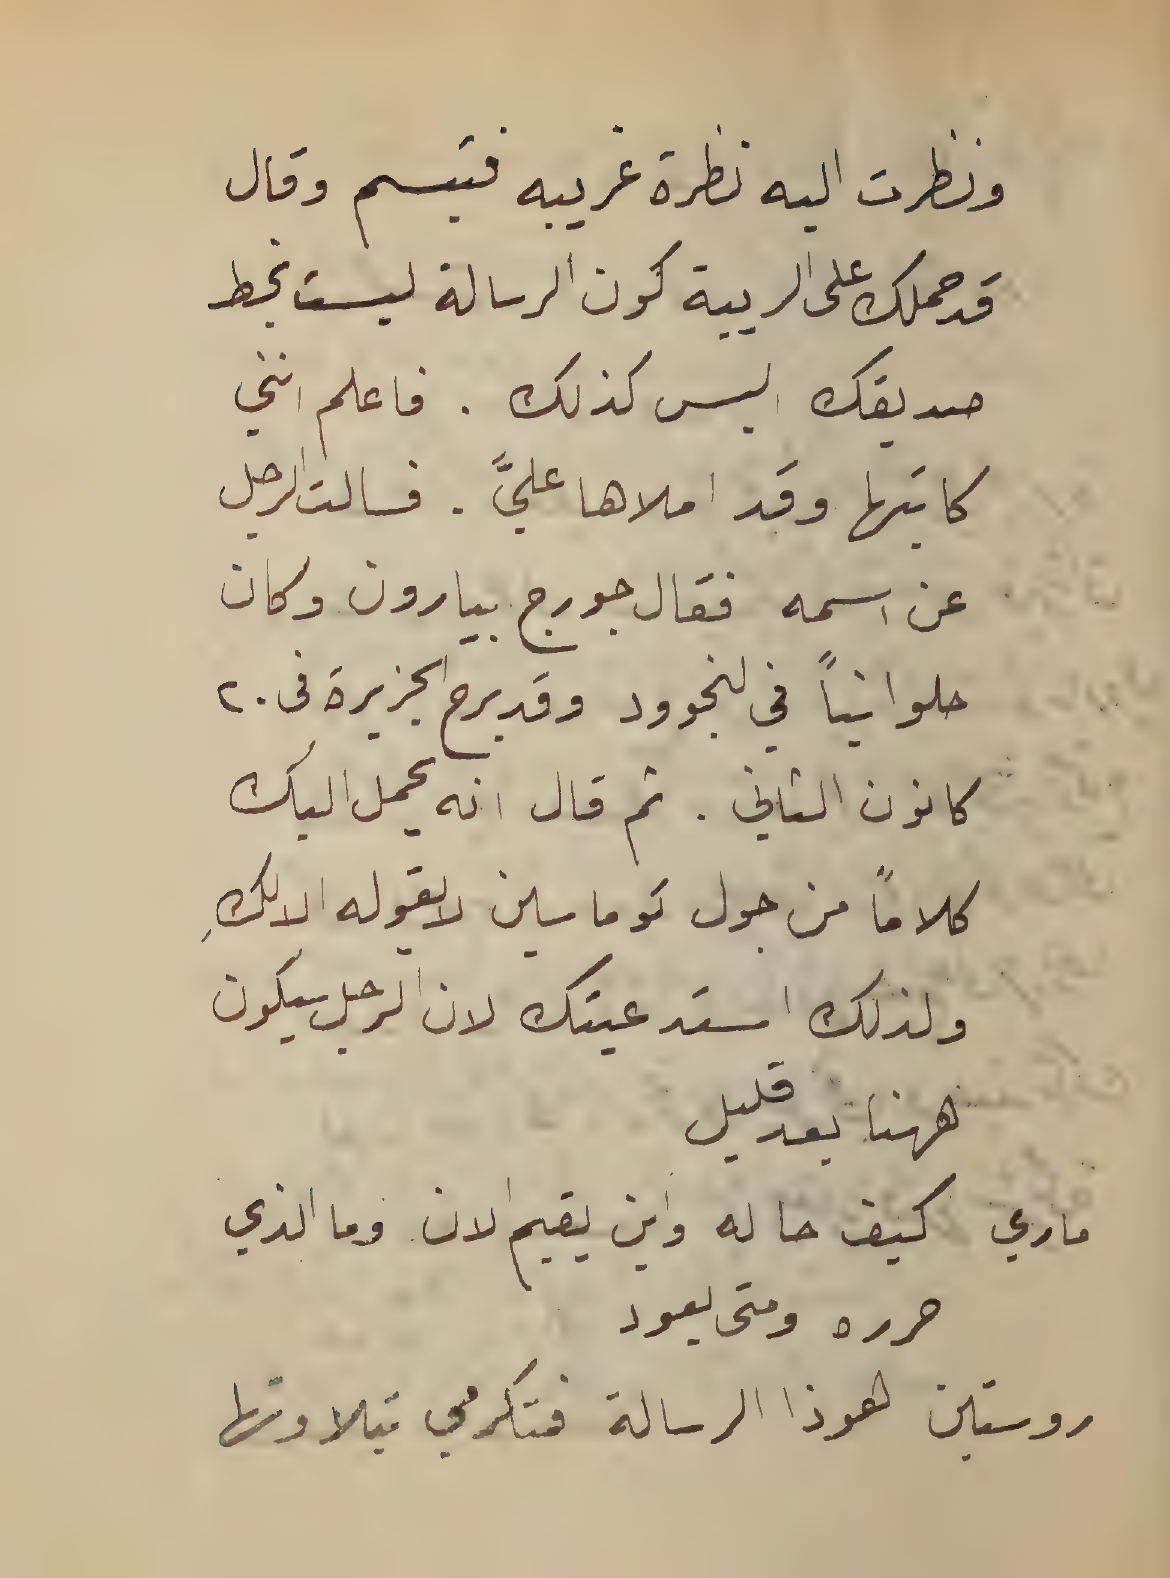 ونظرت اليه نظرة غريبه فتبسم وقال
قد حملك على الريبة كون الرسالة ليست بخط
صديقك اليس كذلك . فاعلم انني
كاتبها وقد املاها عليَّ . فسالت الرجل
عن اسمه فقال جورج بيارون وكان
حلوانياً في لنجوود وقد برح الجزيرة في ٢٠
كانون الثاني . ثم قال انه يحمل اليك
كلاماً من جول توماسين لا يقوله الا لكِ
ولذلك استدعيتك لان الرجل سيكون
ههنا بعد قليل
ماري كيف حاله واين يقيم الان وما الذي
حرره ومتى يعود
روستين هوذا الرسالة فتكرمي بتلاوتها